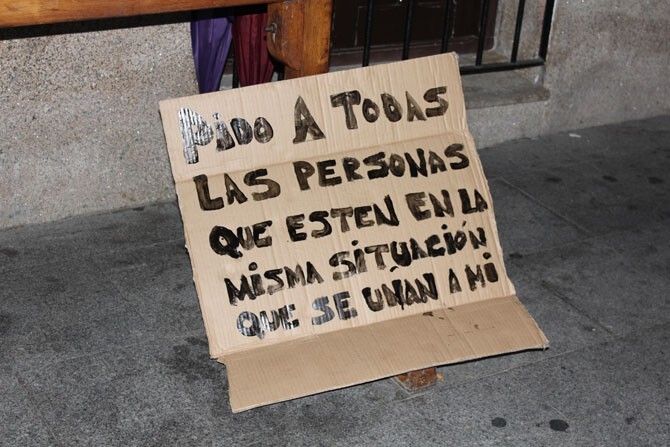 PIDO A TODAS
LAS PERSONAS
QUE ESTEN EN LA
MISMA SITUACIÓN
QUE SE UÑAN A MI